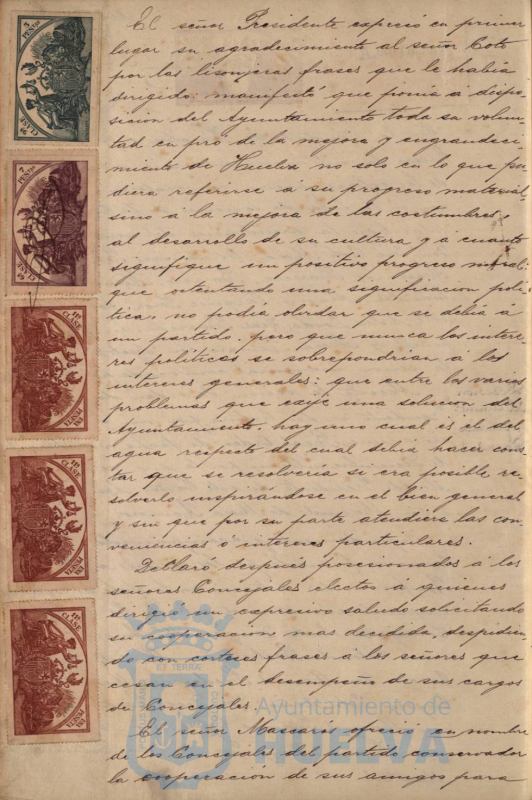 El señor Presidente expresó en primer
lugar su agradecimiento al señor Coto
por las lisonjeras frases que le había
dirigido: manifestó que ponía á dispo-
sición del Ayuntamiento toda su volun-
tad en pró de la mejora y engrandeci-
miento de Huelva no solo en lo que pu-
diera referirse á su progreso material
sino á la mejora de las costumbres,
al desarrollo de su cultura y a cuanto
signifique un positivo progreso moral:
que ostentando una significación polí-
tica, no podía olvidar que se debía á
un partido, pero que nunca los inte-
reses políticos se sobrepondrian á los
intereses generales: que entre los varios
problemas que exije una solución del
Ayuntamiento, hay uno cual es el del
agua respecto del cual debía hacer cons-
tar que se resolvería si era posible re-
solverlo inspirándose en el bien general
y sin que por su parte atendiera las con-
veniencias ó intereses particulares.
Declaró después posesionados á los
señores Concejales electos á quienes
dirigió un expresivo saludo solicitando
su cooperación mas decidida, despidien-
do con corteses frases á los señores que
cesan en el desempeño de sus cargos
de Concejales.
El señor Mascarós ofreció en nombre
de los Concejales del partido conservador
la cooperación de sus amigos para
3 PESETAS
CLASE
CLASE
11ª CLASE
UNA PESETA
11ª CLASE
UNA PESETA
11ª CLASE
UNA PESETA
Ayuntamiento de
HUELVA